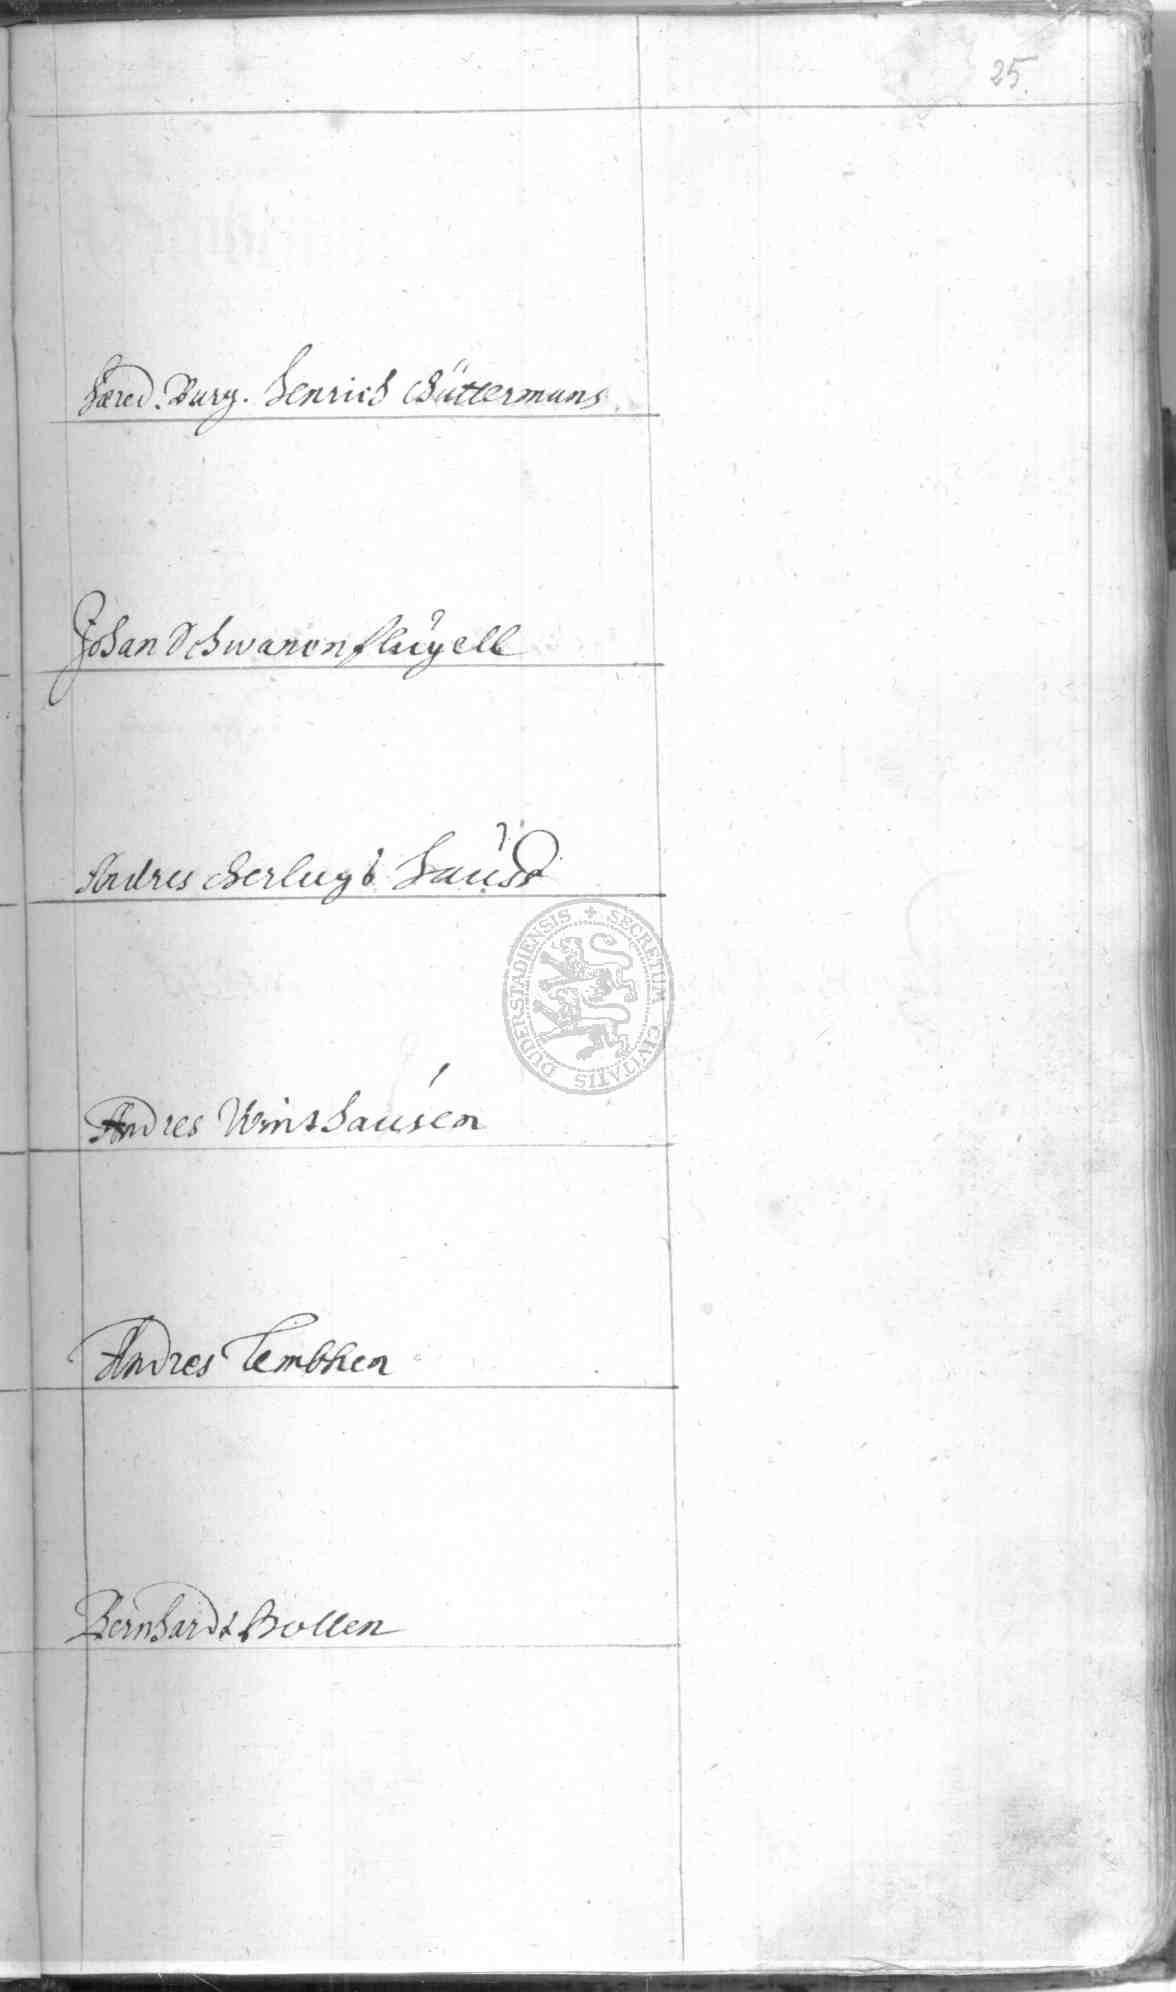 25.
Hæred. Burg. Henrich Hüttermans
Johan Schwaronflügell
Andres Herlugs Hauß
Andres Winthausen
Andres Lembken
Bernhardt Bollen
SECRETUM CIVITATIS DUDERSTADIENSIS